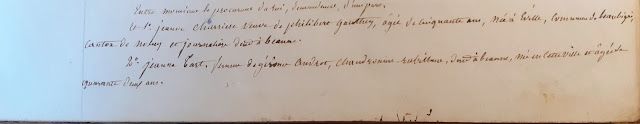 Entre monsieur le procureur du roi, demandeur, d'une part.
et 1° jeanne Charrière veuve de philibert gauthey, âgée de cinquante ans, née à Évelle, commune de baubigny,
canton de nolay et journalière dem.t à beaune.
2° jeanne Tart, femme de gérôme Audrot, chaudronnier-robinetier, dem.t à beaune, née en cette ville et âgée de
quarante deux ans.